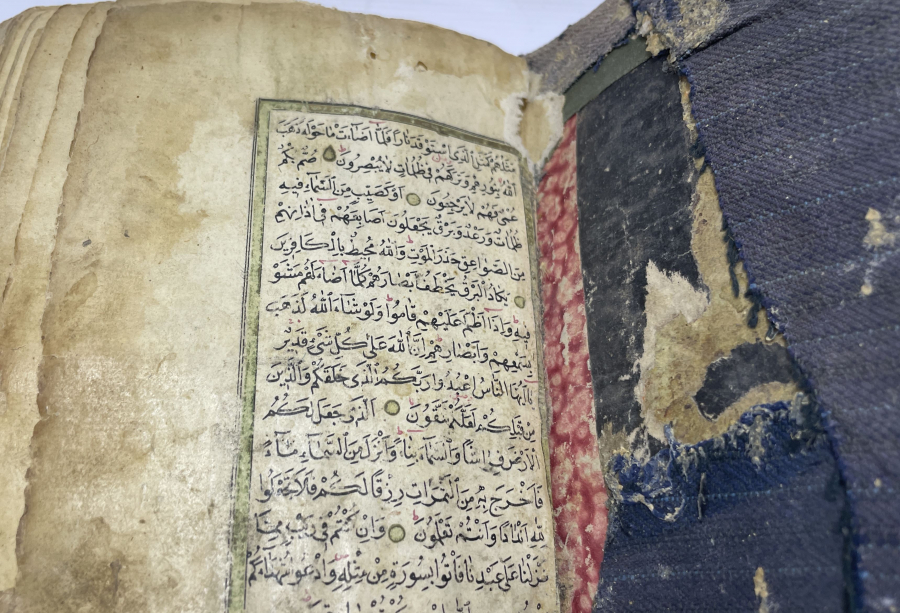 مَثَلُهُمْ كَمَثَلِ الَّذِي اسْتَوْقَدَ نَارًا فَلَمَّا أَضَاءَتْ مَا حَوْلَهُ ذَهَبَ
اللَّهُ بِنُورِهِمْ وَتَرَكَهُمْ فِي ظُلُمَاتٍ لَا يُبْصِرُونَ صُمٌّ بُكْمٌ
عُمْيٌ فَهُمْ لَا يَرْجِعُونَ أَوْ كَصَيِّبٍ مِنَ السَّمَاءِ فِيهِ
ظُلُمَاتٌ وَرَعْدٌ وَبَرْقٌ يَجْعَلُونَ أَصَابِعَهُمْ فِي آذَانِهِمْ
مِنَ الصَّوَاعِقِ حَذَرَ الْمَوْتِ وَاللَّهُ مُحِيطٌ بِالْكَافِرِينَ
يَكَادُ الْبَرْقُ يَخْطَفُ أَبْصَارَهُمْ كُلَّمَا أَضَاءَ لَهُمْ مَشَوْا
فِيهِ وَإِذَا أَظْلَمَ عَلَيْهِمْ قَامُوا وَلَوْ شَاءَ اللَّهُ لَذَهَبَ
بِسَمْعِهِمْ وَأَبْصَارِهِمْ إِنَّ اللَّهَ عَلَى كُلِّ شَيْءٍ قَدِيرٌ
يَا أَيُّهَا النَّاسُ اعْبُدُوا رَبَّكُمُ الَّذِي خَلَقَكُمْ وَالَّذِينَ
مِنْ قَبْلِكُمْ لَعَلَّكُمْ تَتَّقُونَ الَّذِي جَعَلَ لَكُمُ
الْأَرْضَ فِرَاشًا وَالسَّمَاءَ بِنَاءً وَأَنْزَلَ مِنَ السَّمَاءِ مَاءً
فَأَخْرَجَ بِهِ مِنَ الثَّمَرَاتِ رِزْقًا لَكُمْ فَلَا تَجْعَلُوا
لِلَّهِ أَنْدَادًا وَأَنْتُمْ تَعْلَمُونَ وَإِنْ كُنْتُمْ فِي رَيْبٍ مِمَّا
نَزَّلْنَا عَلَى عَبْدِنَا فَأْتُوا بِسُورَةٍ مِنْ مِثْلِهِ وَادْعُوا شُهَدَاءَكُمْ